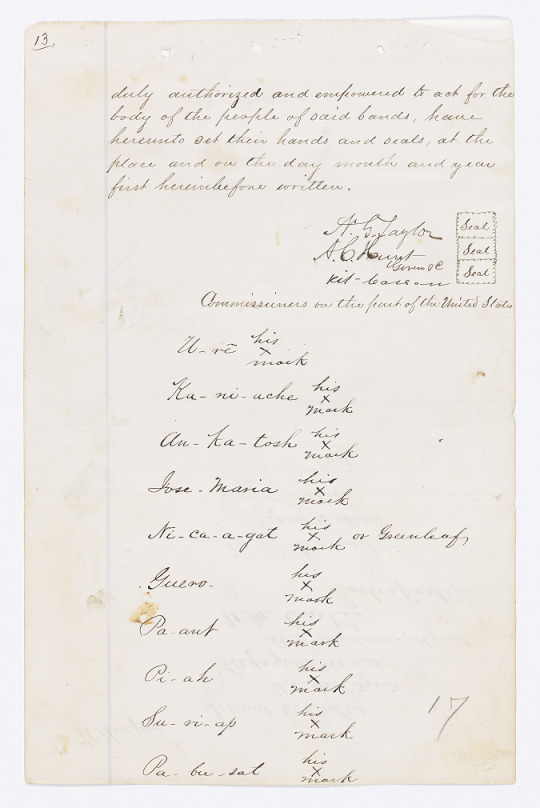 13.
duly authorized and empowered to act for the
body of the people of said bands, have
hereunto set their hands and seals, at the
place and on the day month and year
first hereinbefore written.
N. G. Taylor Seal
A. C. Hunt Seal
Kit Carson Seal
Commissioners on the part of the United States
U-rē his x mark
Ka-ni-ache his x mark
An-ka-tosh his x mark
Jose-Maria his x mark
Ni-ca-a-gat his x mark or Greenleaf,
Guero- his x mark
Pa-ant his x mark
Pi-ah his x mark
17
Su-vi-ap his x mark
Pa-bu-sat his x mark